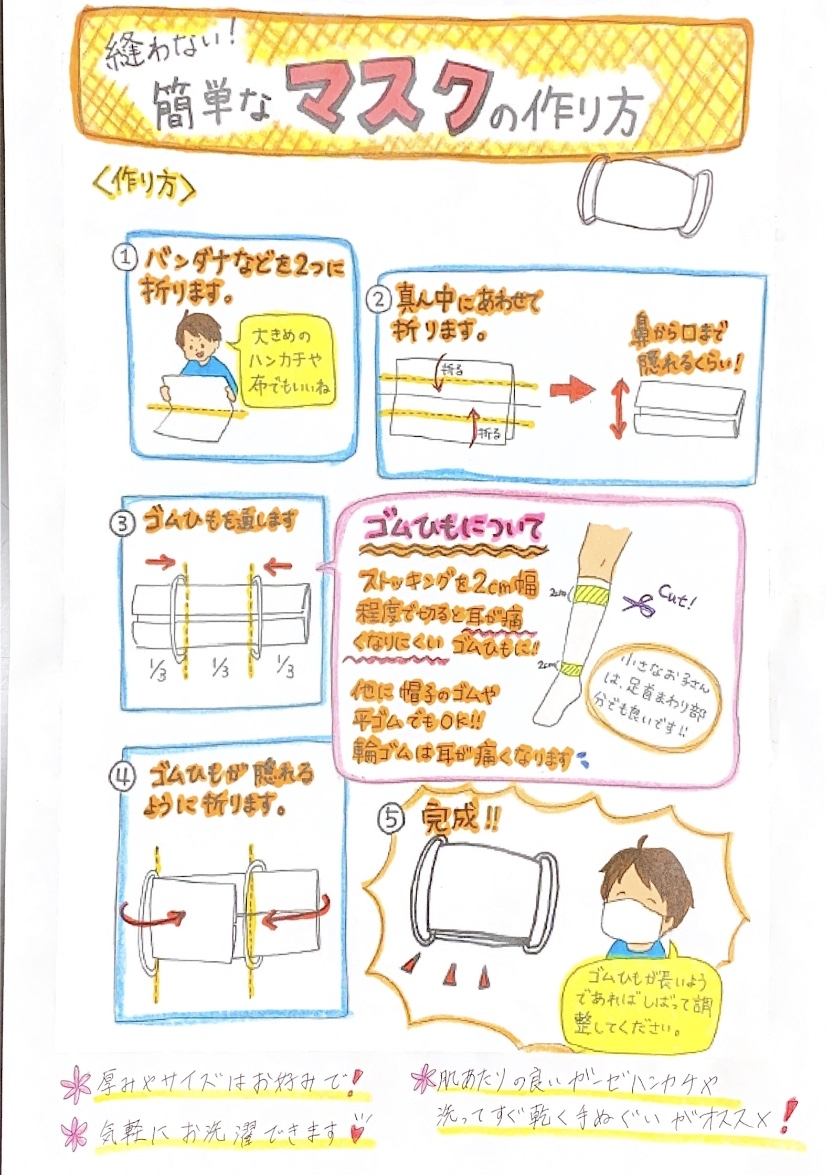 縫わない!
簡単なマスクの作り方
〈作り方〉
① バンダナなどを2つに
折ります。
大きめの
ハンカチや
布でもいいね
② 真ん中にあわせて
折ります。
折る
折る
鼻から口まで
隠れるくらい!
③ ゴムひもを通します
1/3 1/3 1/3
ゴムひもについて
ストッキングを2cm幅
程度で切ると耳が痛
くなりにくい ゴムひもに!!
他に帽子のゴムや
平ゴムでもOK!!
輪ゴムは耳が痛くなります
2cm
Cut!
2cm
小さなお子さん
は、足首まわり部
分でも良いです!!
④ ゴムひもが隠れる
ように折ります。
⑤ 完成!!
ゴムひもが長いよう
であればしばって調
整してください。
厚みやサイズはお好みで!
気軽にお洗濯できます
肌あたりの良いガーゼハンカチや
洗ってすぐ乾く手ぬぐいがオススメ!